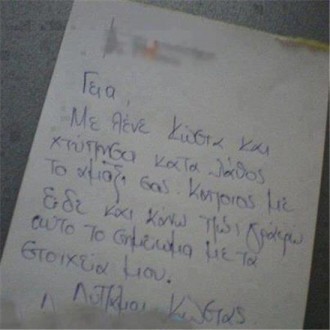 Γεια,
Με λένε Κώστα και
χτύπησα κατα λάθος
το αμάξι σας. Κάποιος με
είδε και κάνω πως γράφω
αυτό το σημείωμα με τα
στοιχεία μου.
Λυπάμαι Κώστας